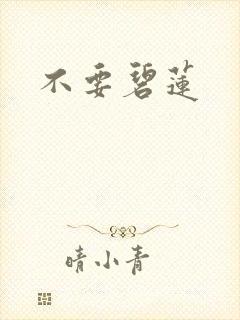 不要碧蓮
晴小青